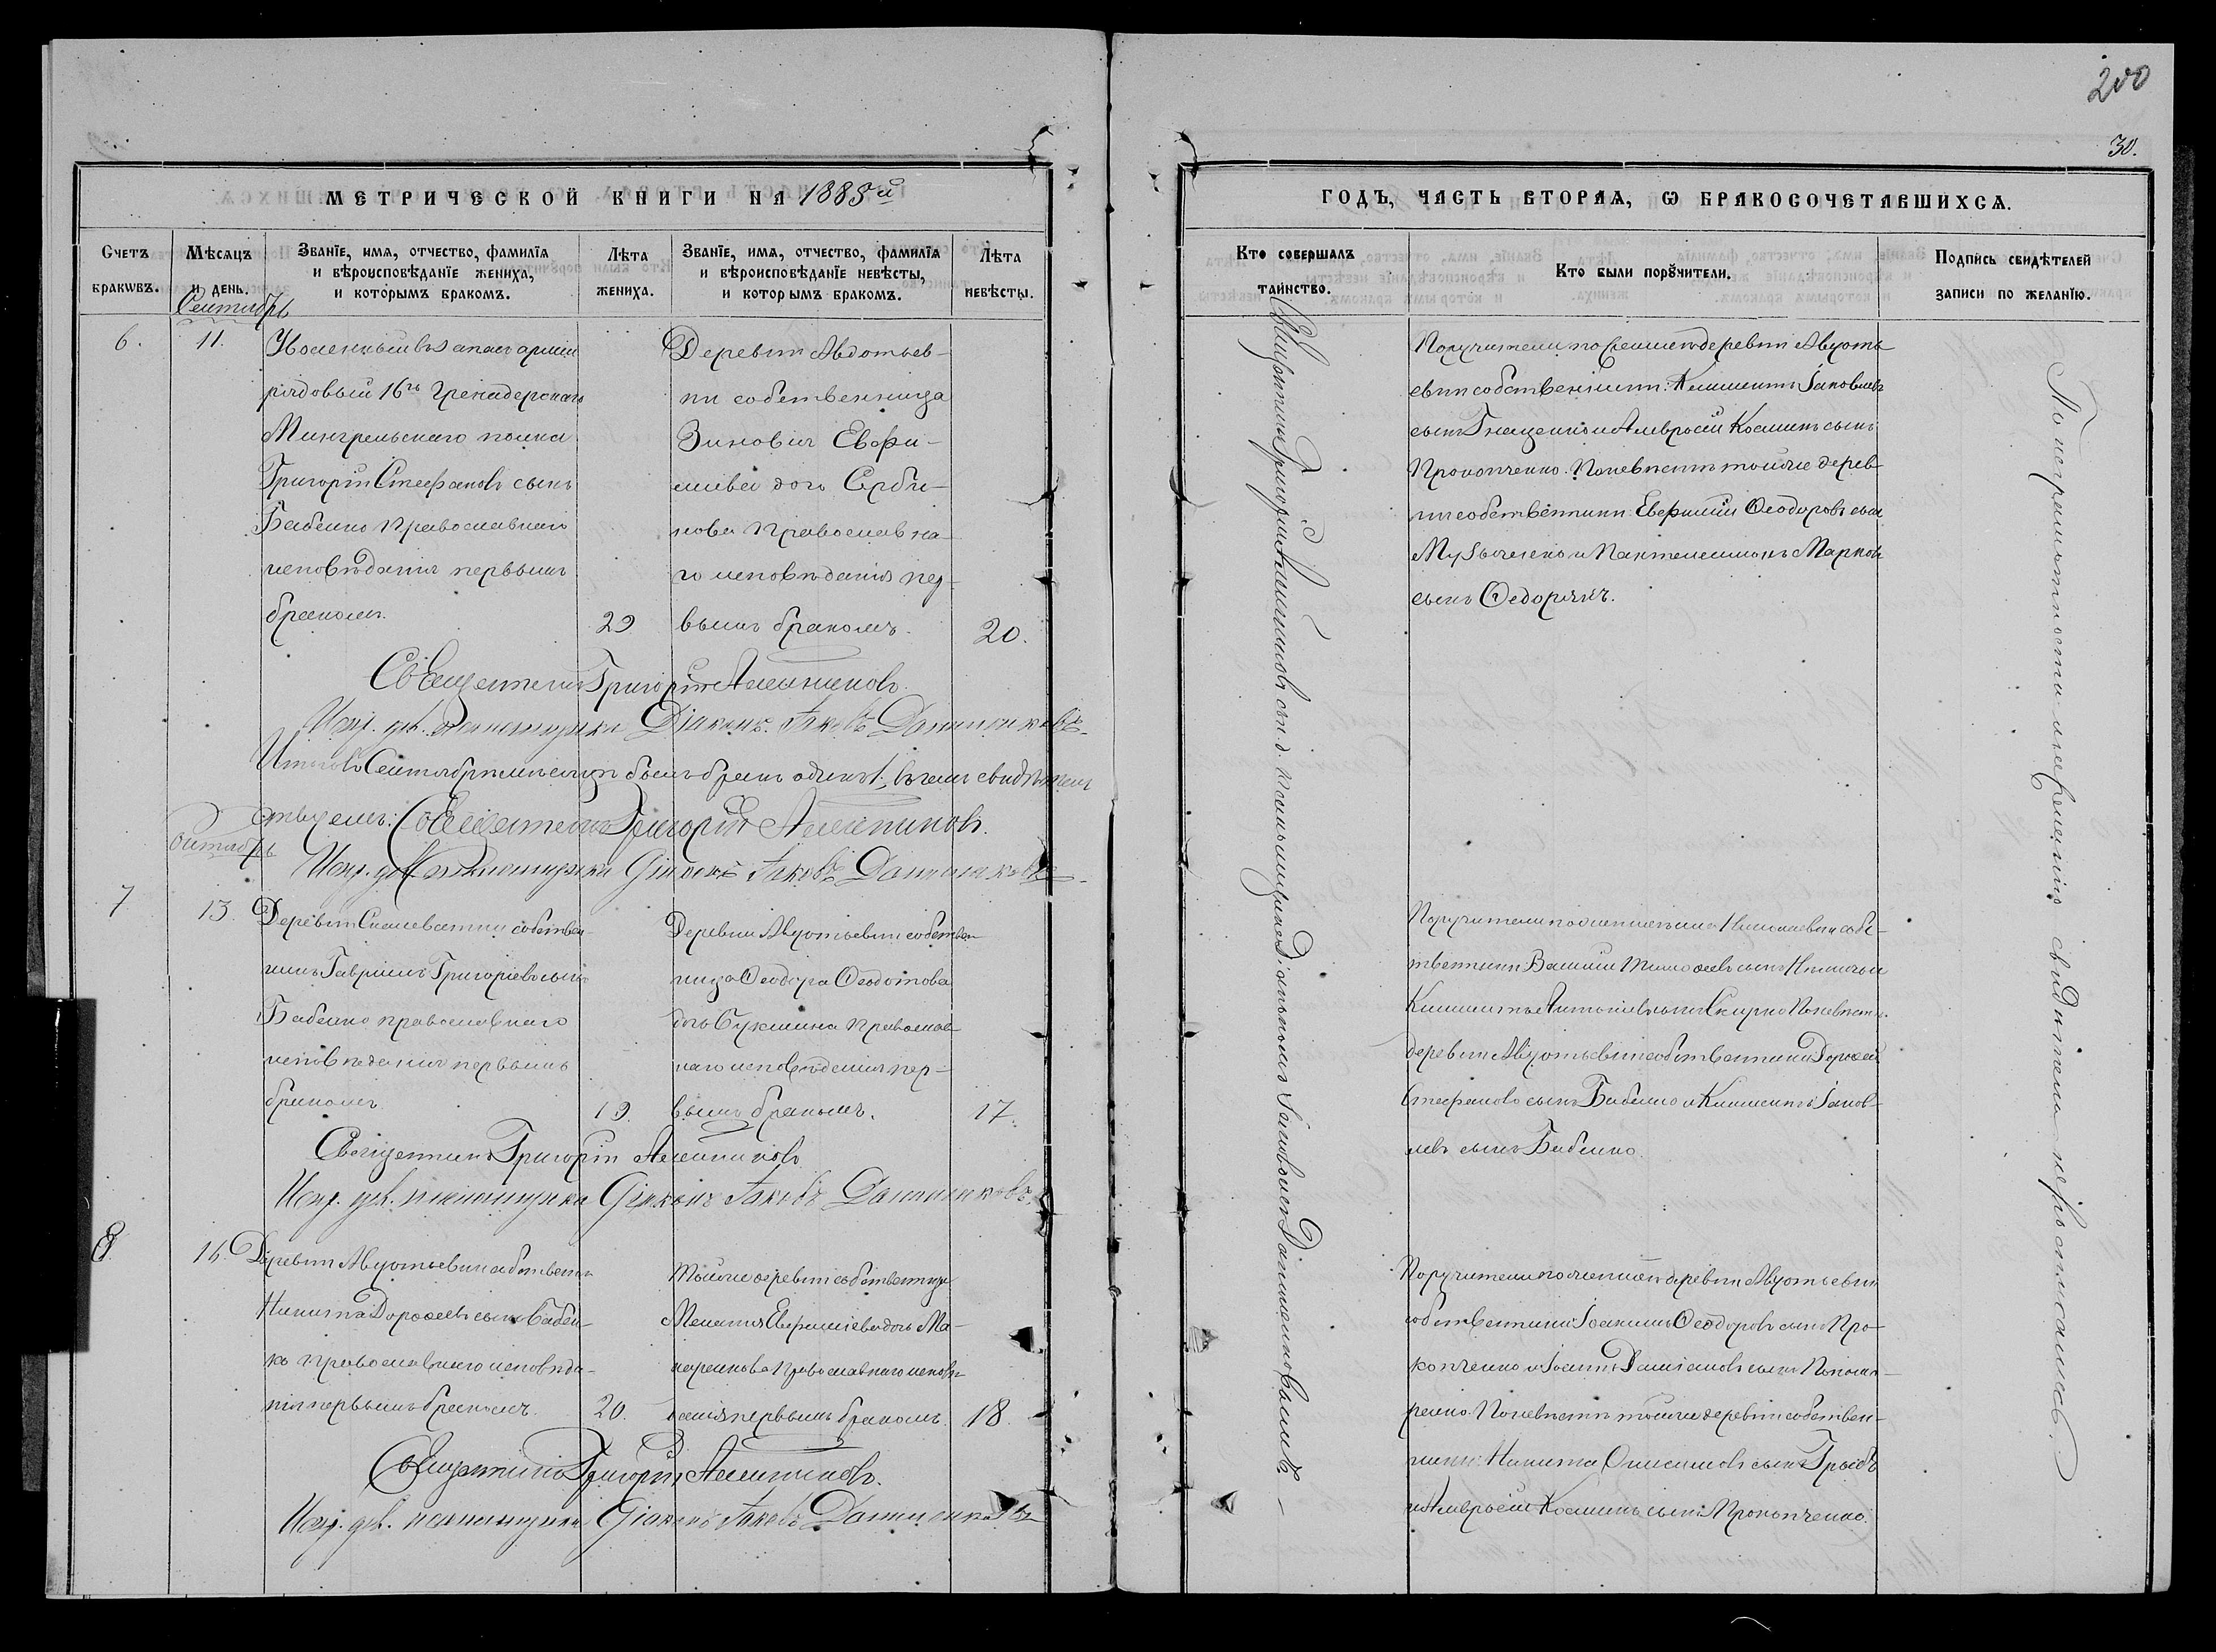 200
30.
МЕТРИЧЕСКОЙ КНИГИ НА 1885й
ГОДЪ, ЧАСТЬ ВТОРАѦ, Ѡ БРАКОСОЧЕТАВШИХСѦ.
Счетъ браковъ.
Мѣсѧцъ и день.
Званїе, имѧ, отчество, фамилїѧ
и вѣроисповѣданїе жениха,
и которымъ бракомъ.
Лѣта
жениха.
Званїе, имѧ, отчество, фамилїѧ
и вѣроисповѣданїе невѣсты,
и которымъ бракомъ.
Лѣта
невѣсты.
Кто совершалъ
таинство.
Кто были порꙋчители.
Подпись свидѣтелей
записи по желанїю.
Сентябрь
6.
11.
Уволенный въ запас армии
рядовый 16го Гренадерскаго
Мингрельскаго полка
Григорій Стефановъ сынъ
Бабенко православнаго
исповѣданія первымъ
бракомъ.
29
Деревни Авдотьев-
ки собственница
Зиновія Евфи-
міева дочь Серби-
нова православна-
го исповѣданія пер-
вымъ бракомъ.
20.
Поручители по женихѣ деревни Авдоть-
евки собственники: Климентъ Іаковлевъ
сынъ Гнащенко и Амвросій Косминъ сынъ
Прокопченко. По невѣстѣ тойже дерев-
ни собственники: Евфимій Ѳеодоровъ сынъ
и Пантелеимонъ Марковъ
сынъ Ѳедорякъ.
Священникъ Григорій
Испр. дол. псаломщика Діаконъ Іаковъ Даниленковъ
Итого въ Сентябрѣ мѣсяцѣ былъ бракъ одинъ 1, въ чемъ свидѣтель-
ствуемъ: Священникъ Григорій
Октябрь
Испр. дол. псаломщика Діаконъ Іаковъ Даниленковъ
7
13.
Деревни Скалеватки собствен-
никъ Гавріилъ Григоріевъ сынъ
Бабенко православнаго
исповѣданія первымъ
бракомъ
19.
Деревни Авдотьевки собствен-
ница Ѳеодора Ѳеодотова
дочь Букшина православ-
наго исповѣданія пер-
вымъ бракомъ.
17.
Поручители по женихѣ села Николаевки собс-
твенники Василій Тимоѳеевъ сынъ
Климентъ Антоніевъ сынъ Скирко По невѣстѣ
деревни Авдотьевки собственники Дороѳей
Стефановъ сынъ Бабенко и Климентъ Іаков-
левъ сынъ Бабенко.
Священникъ Григорій
Испр. дол. псаломщика Діаконъ Іаковъ Даниленковъ
8.
Деревни Авдотьевки собственникъ
Никита Дороѳеевъ сынъ Бабен-
ко православнаго исповѣда-
нія первымъ бракомъ.
20.
Тойже деревни собственница
Меланія Евфиміева дочь Ма-
православнаго исповѣ-
данія первымъ бракомъ.
18.
Поручители по женихѣ деревни Авдотьевки
собственники: Іоакимъ Ѳеодоровъ сынъ Про-
копченко и Іоаннъ Даміановъ сынъ Понома-
ренко. По невѣстѣ тойже деревни собствен-
ники: Никита Онисимовъ сынъ
и Амвросій Косминъ сынъ Прокопченко.
Священникъ Григорій
Испр. дол. псаломщика Діаконъ Іаковъ Даниленковъ
Священникъ Григорій съ и. д. псаломщика Діакономъ Іаковомъ Даниленковымъ.
По неграмотности и нежеланію свидѣтели не росписались.